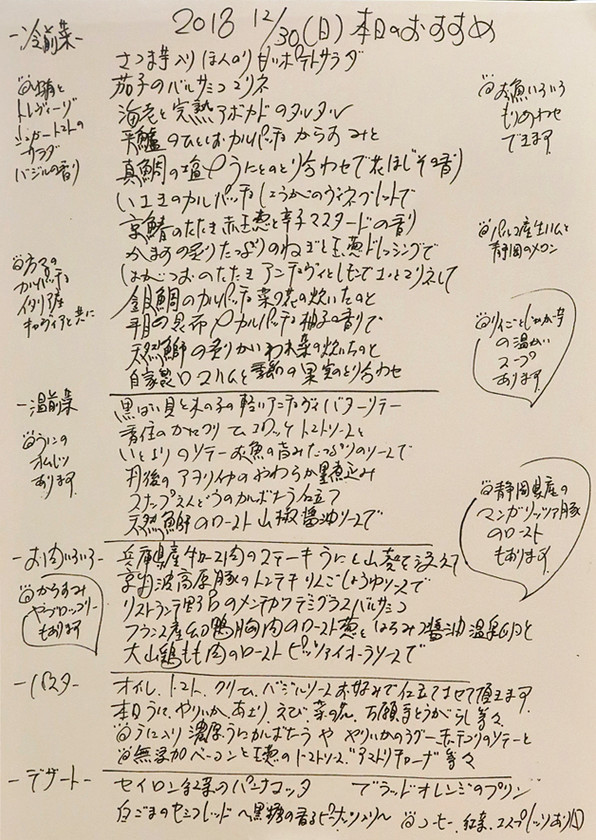 2018 12/30(日) 本日のおすすめ
-冷前菜-
さつま芋入り ほんのり甘いポテトサラダ
茄子のバルサミコマリネ
海老と完熟アボカドのタルタル
平鱸のひとしおカルパッチョ からすみと
真鯛の塩〆うにとのとり合わせで花ほじその香り
いさきのカルパッチョ しょうがのヴィネグレットで
京鯖のたたき 赤玉葱と辛子マスタードの香り
かますの炙り たっぷりのねぎと玉葱ドレッシングで
金目鯛のカルパッチョ 菜の花の炊いたのと
平目の昆布〆カルパッチョ 柚子の香りで
天然鰤の炙り かいわれ菜の炊いたのと
自家製ロースハムと季節の果実のとり合わせ
トレヴィーゾ
シュガートマトの
サラダ
バジルの香り
カルパッチョ
イタリア産
キャヴィアと共に
お魚いろいろ
もりあわせ
できます
パルマ産生ハムと
静岡のメロン
りんごとじゃが芋
の温かい
スープ
あります
-温前菜-
黒ばい貝と木の子の軽いアンチョヴィバターソテー
いとよりのソテー お魚の旨みたっぷりのソースで
丹後のアオリイカのやわらか墨煮込み
スナップえんどうのカルボナーラ仕立て
天然鰤のロースト 山椒醤油ソースで
うにの
オムレツ
あります
静岡県産の
マンガリッツァ豚
のロースト
もあります
-お肉いろいろ-
京丹波高原豚のトンテキ りんごしょうゆソースで
フランス産 鴨胸肉のロースト 葱とはちみつ醤油 温泉卵と
大山鶏もも肉のロースト ピッツァイオーラソースで
からすみ
やブロッコリー
もあります
-パスタ-
オイル、トマト、クリーム、バジルソース お好みで仕立てさせて頂きます
本日うに、やりいか、あさり、えび、菜の花、万願寺とうがらし等々
うに入り 濃厚うにカルボナーラ や やりいかのラグー
無添加ベーコンと玉葱のトマトソース"アマトリチャーナ"等々
-デザート-
セイロン紅茶のパンナコッタ ブラッドオレンジのプリン
白ごまのセミフレッド 〜黒糖の香るピーナッツ入り〜 コーヒー 紅茶 エスプレッソあり〼